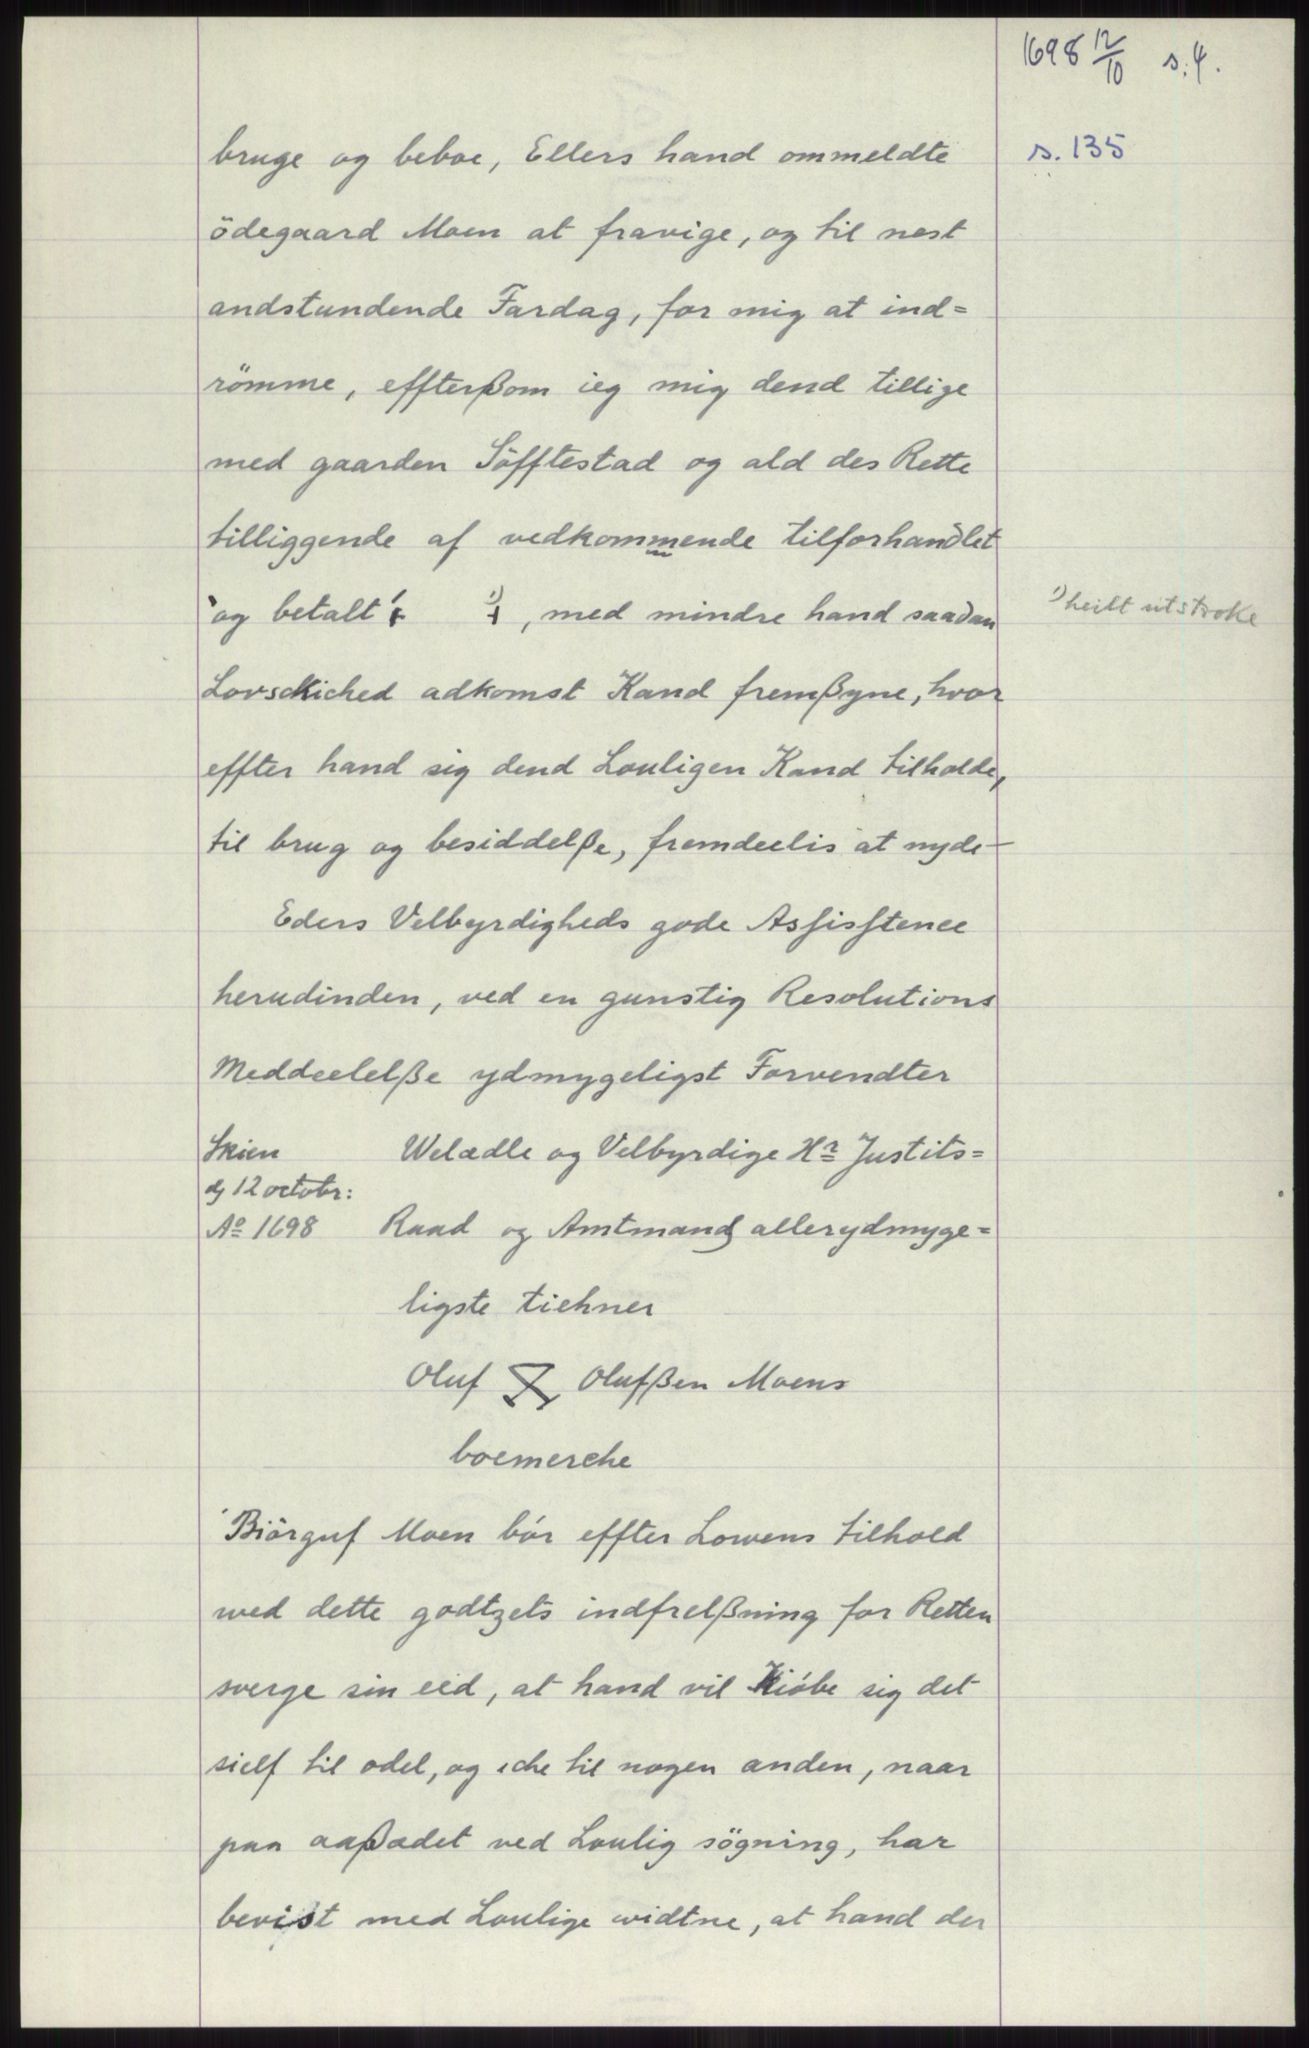 1698 12/10 s. 4.
s. 135
bruge og beboe, Ellers hand ommeldte
ödegaard Moen at fravige, og til nest
andstundende Fardag, for mig at ind=
römme, effterßom ieg mig dend tillige
med gaarden Söfftestad og ald des Rette
tilliggende af vedkommende tilforhandlet
og betalt ¹), med mindre hand saadan
¹) heilt utstroke
Lovsckiched adkomst Kand fremßyne, hvor
effter hand sig dend Louligen Kand tilholde,
til brug og besiddelße, fremdeelis at nyde—
Eders Velbyrdigheds gode Assistence
herudinden, ved en gunstig Resolutions
Meddeelelße ydmygeligst Forvendter
Skien Welædle og Velbyrdige Hr Justits=
dj 12 octobr:
Ao 1698 Raad og Amtmands allerydmyge=
ligste tiehner
Oluf Olufßen Moens
boemerche
Biörguf Moen bör effter Lowens tilhold
wed dette godtzets indfrelßning for Retten
sverge sin eed, at hand vil Kiöbe sig det
sielf til odel, og iche til nogen anden, naar
paa aaßædet ved Loulig sögning, har
bevist med Loulige widtne, at hand der